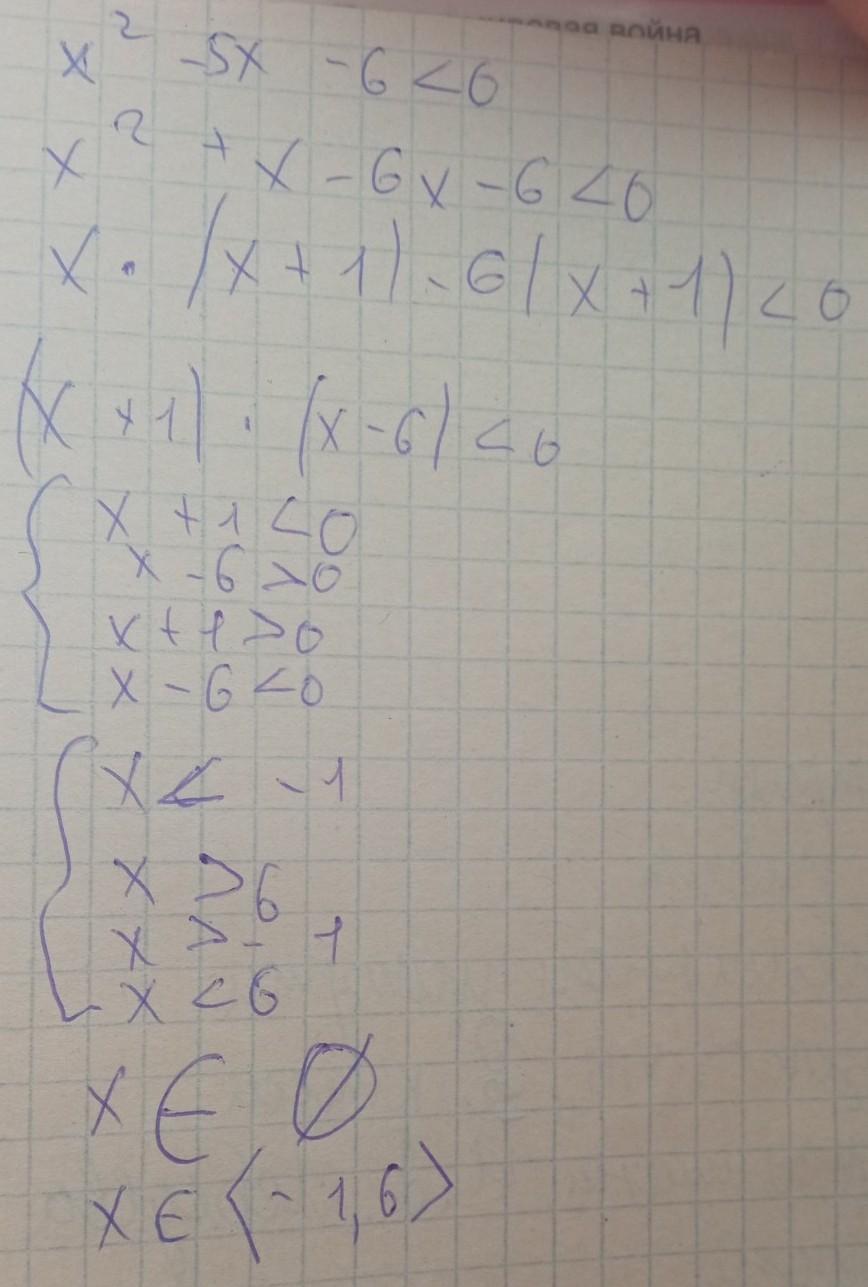 ировая война
x² -5x -6 <0
x² + x - 6x - 6 <0
x · (x + 1) - 6(x + 1) < 0
(x + 1) · (x - 6) < 0
x + 1 < 0
x - 6 > 0
x + 1 > 0
x - 6 < 0
x < -1
x > 6
x > - 1
x < 6
x ∈ ∅
x ∈ ⟨-1,6⟩